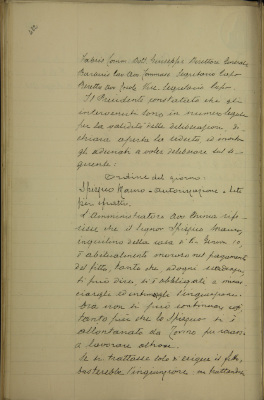 Fabris Comm. Dott. Giuseppe Direttore Generale
Bardanis Cav. Avv. Tommaso Segretario Capo
Beretta Avv. Vice Segretario Capo.
Il Presidente constatato che gli
intervenuti sono in numero legale
per la validità delle deliberazioni di-
chiara aperta la seduta ed invita
gli adunati a voler deliberare sul se-
guente:
Ordine del giorno:
Spreafico Mauro - Autorizzazione a lite
per sfratto.
L'Amministratore Avv. Bruna rife-
risce che il signor Spreafico Mauro,
inquilino della casa di
è abitualmente moroso nel pagamento
del fitto, tanto che, ad ogni scadenza,
si può dire, si è obbligati a minac-
ciargli ed intimargli l'ingiunzione.
Ora non si può continuare così,
tanto più che lo Spreafico si è
allontanato da Torino per recarsi
a lavorare altrove.
Se si trattasse solo di esigere il fitto,
basterebbe l'ingiunzione, ma trattandosi